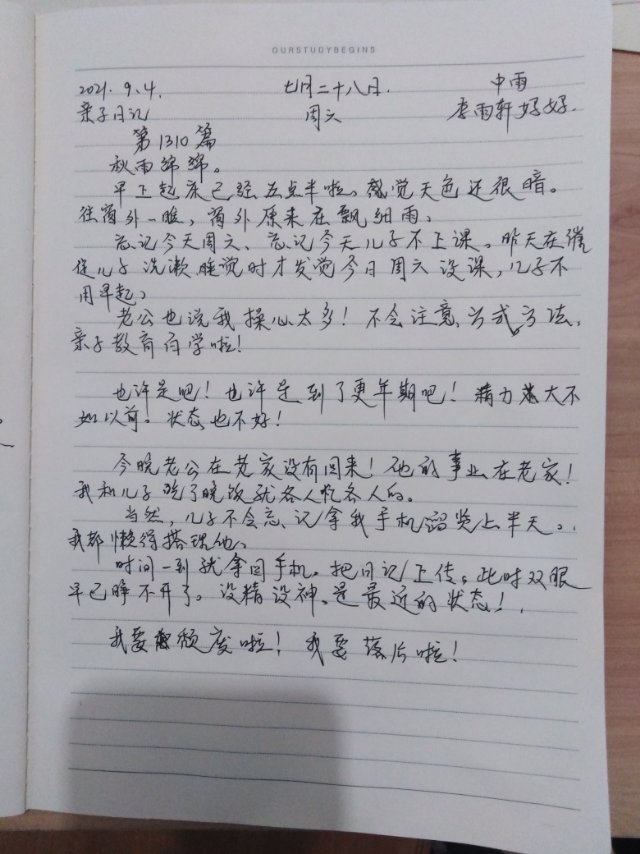 OURSTUDYBEGINS
2021.9.4. 七月二十八日. 中雨
亲子日记 周六 李雨轩妈妈.
第1310篇
秋雨绵绵。
早上起床已经五点半啦。感觉天色还很暗。
往窗外一瞧，窗外原来在飘细雨、
忘记今天周六、忘记今天儿子不上课。昨天在催
促儿子洗漱睡觉时才发觉今日周六没课，儿子不
用早起、
老公也说我操心太多！不会注意方式方法，
亲子教育白学啦！
也许是吧！也许是到了更年期吧！精力大不
如以前。状态也不好！
今晚老公在老家没有回来！他的事业在老家！
我和儿子吃了晚饭就各人忙各人的。
当然，儿子不会忘记拿我手机浏览上半天。
我都懒得搭理他、
时间一到就拿回手机。把日记上传。此时双眼
早已睁不开了。没精没神。是最近的状态！
我要颓废啦！我要落片啦！